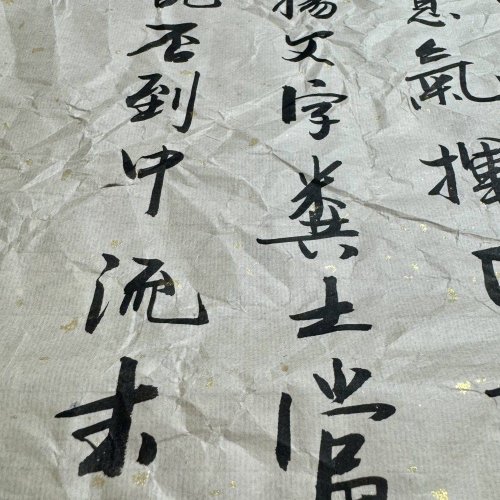 意氣揮
揚文字糞土當
記否到中流